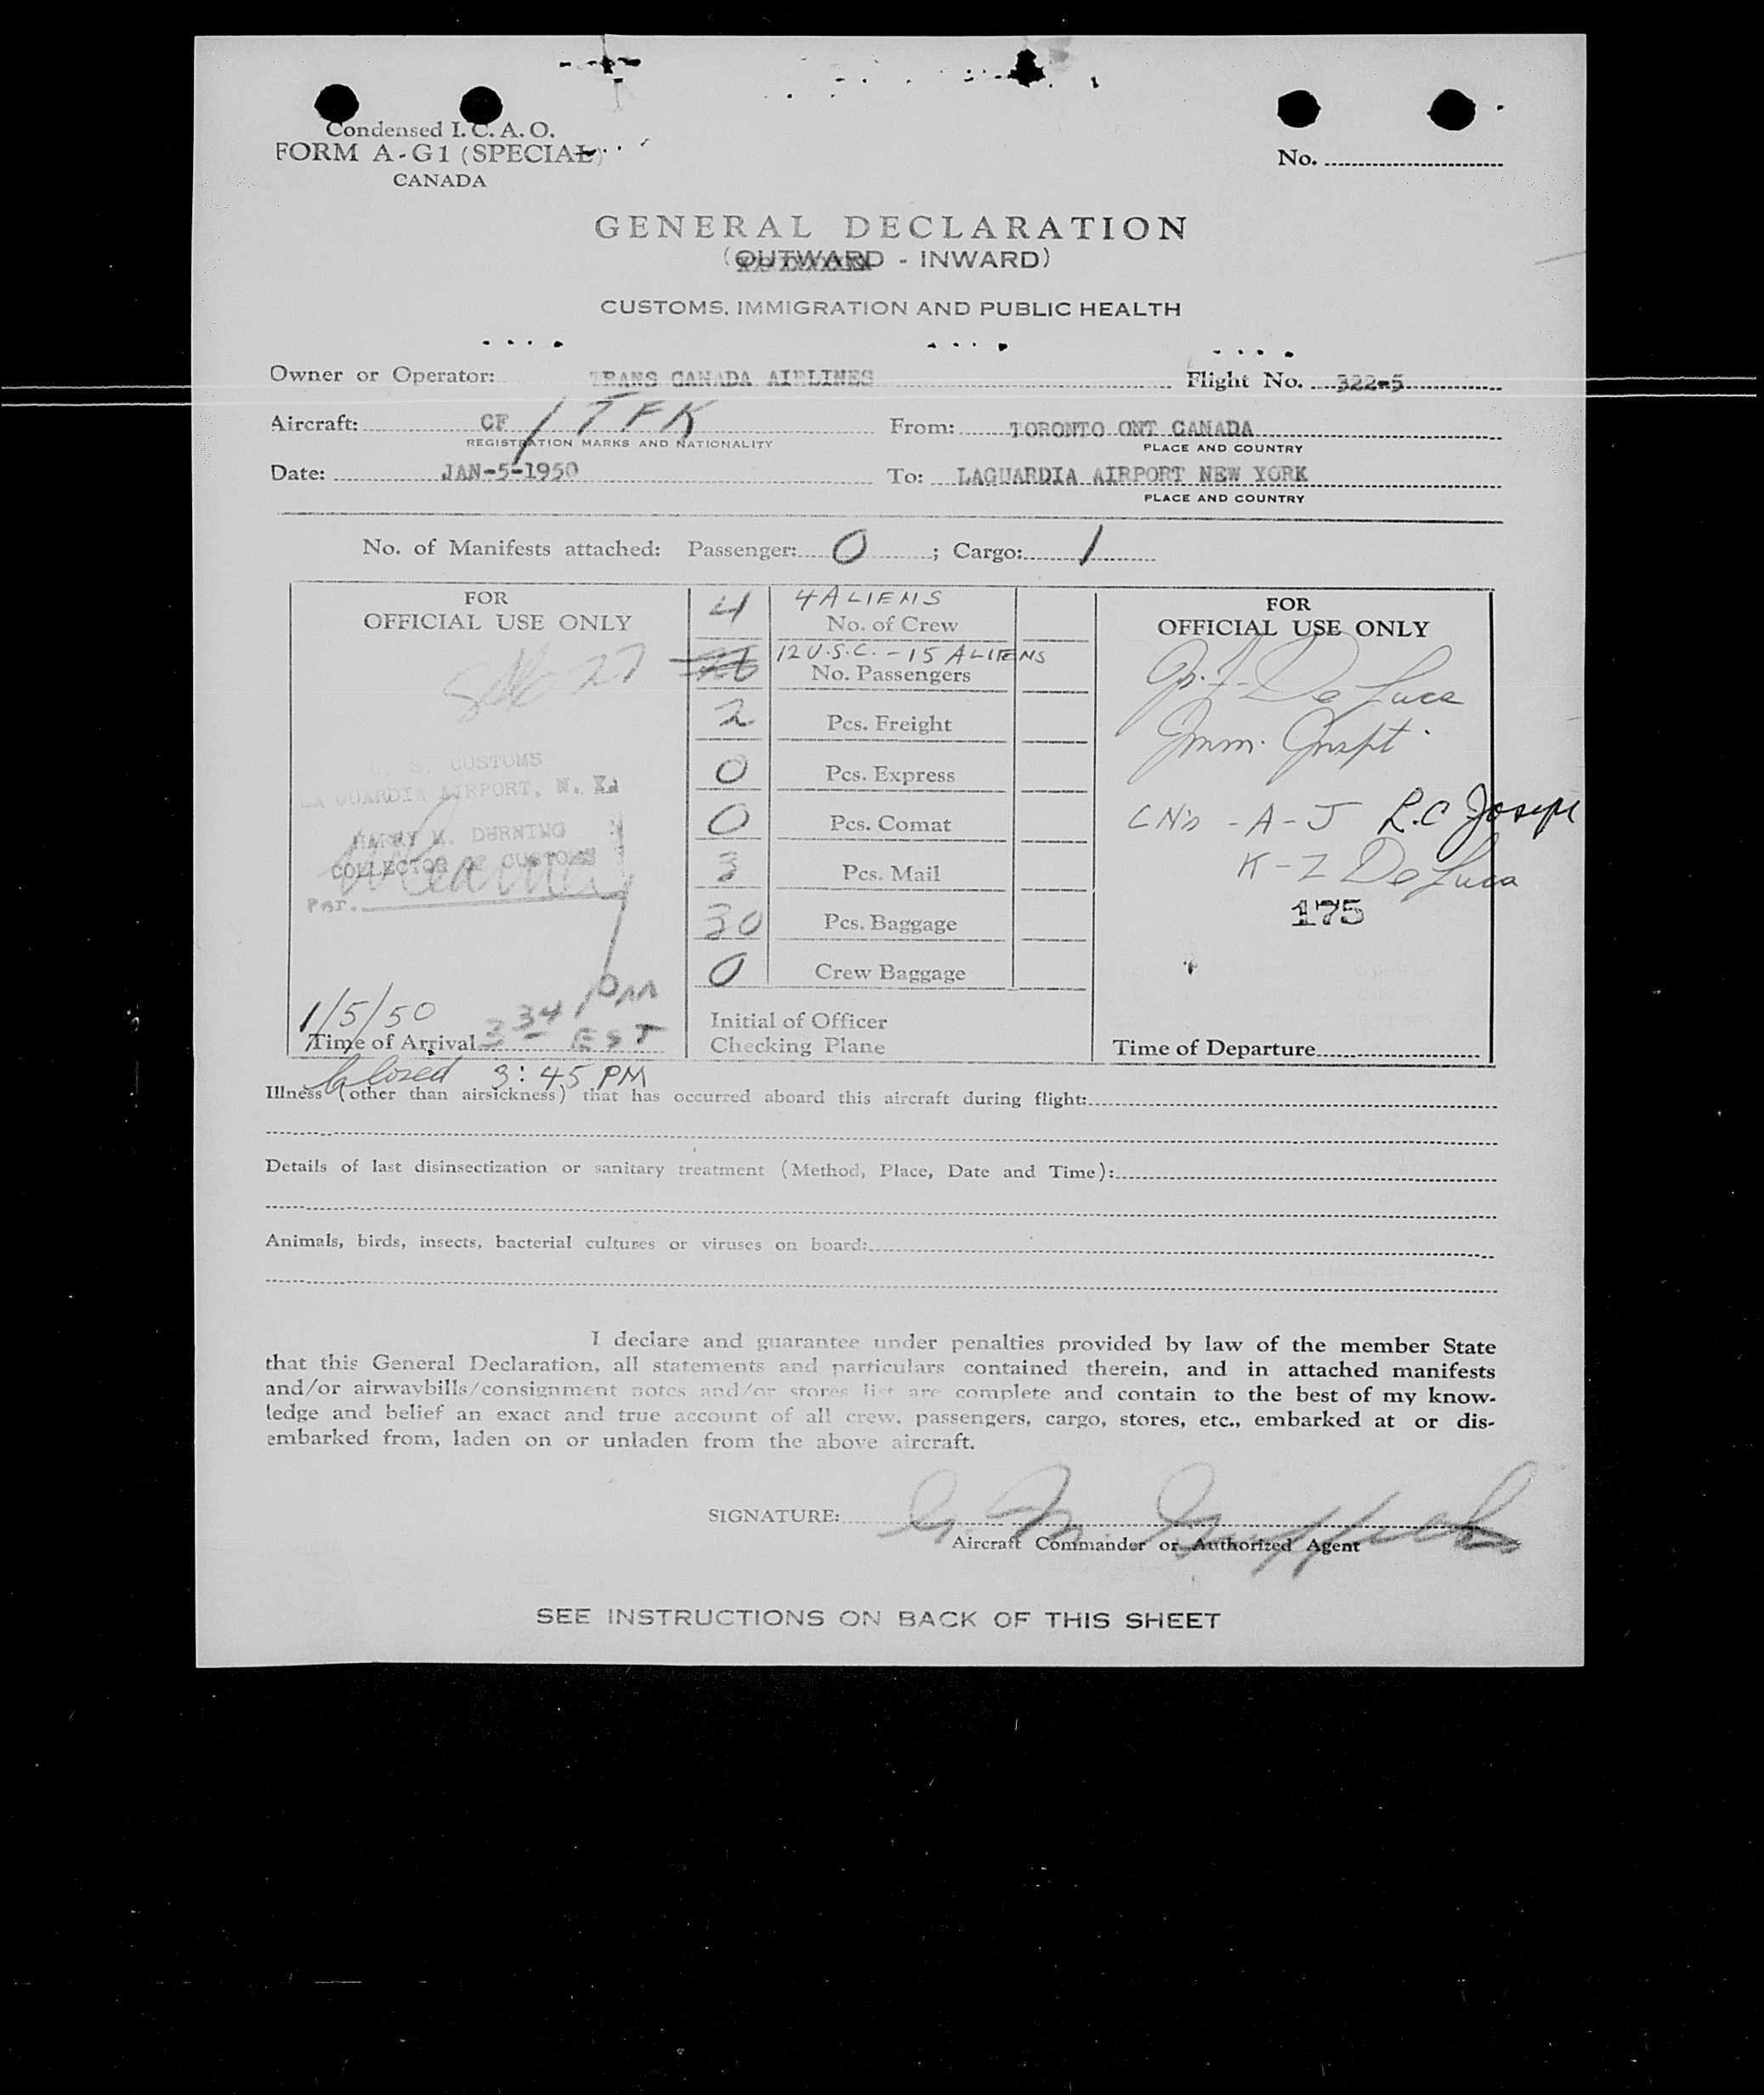 Condensed I. C. A. O.
FORM A-G1 (SPECIAL)
CANADA
No.
GENERAL DECLARATION
(OUTWARD - INWARD)
CUSTOMS, IMMIGRATION AND PUBLIC HEALTH
Owner or Operator: TRANS CANADA AIRLINES Flight No. 322-5
Aircraft: CF / TFK From: TORONTO ONT CANADA
REGISTRATION MARKS AND NATIONALITY PLACE AND COUNTRY
Date: JAN-5-1950 To: LAGUARDIA AIRPORT NEW YORK
PLACE AND COUNTRY
No. of Manifests attached: Passenger: 0 ; Cargo: 1
FOR
OFFICIAL USE ONLY
27
U. S. CUSTOMS
LA GUARDIA AIRPORT, N. Y.
HARRY M. DURNING
COLLECTOR OF CUSTOMS
Per.
1/5/50
Time of Arrival 3 34 PM EST
Closed 3:45 PM
4 4 ALIENS
No. of Crew
12 U.S.C. - 15 ALIENS
No. Passengers
2 Pcs. Freight
0 Pcs. Express
0 Pcs. Comat
3 Pcs. Mail
30 Pcs. Baggage
0 Crew Baggage
Initial of Officer
Checking Plane
FOR
OFFICIAL USE ONLY
De Luca
Imm. Inspt.
- A - J R.C Joseph
K - Z De Luca
175
Time of Departure
Illness (other than airsickness) that has occurred aboard this aircraft during flight:
Details of last disinsectization or sanitary treatment (Method, Place, Date and Time):
Animals, birds, insects, bacterial cultures or viruses on board:
I declare and guarantee under penalties provided by law of the member State
that this General Declaration, all statements and particulars contained therein, and in attached manifests
and/or airwaybills/consignment notes and/or stores list are complete and contain to the best of my know-
ledge and belief an exact and true account of all crew, passengers, cargo, stores, etc., embarked at or dis-
embarked from, laden on or unladen from the above aircraft.
SIGNATURE:
Aircraft Commander or Authorized Agent
SEE INSTRUCTIONS ON BACK OF THIS SHEET